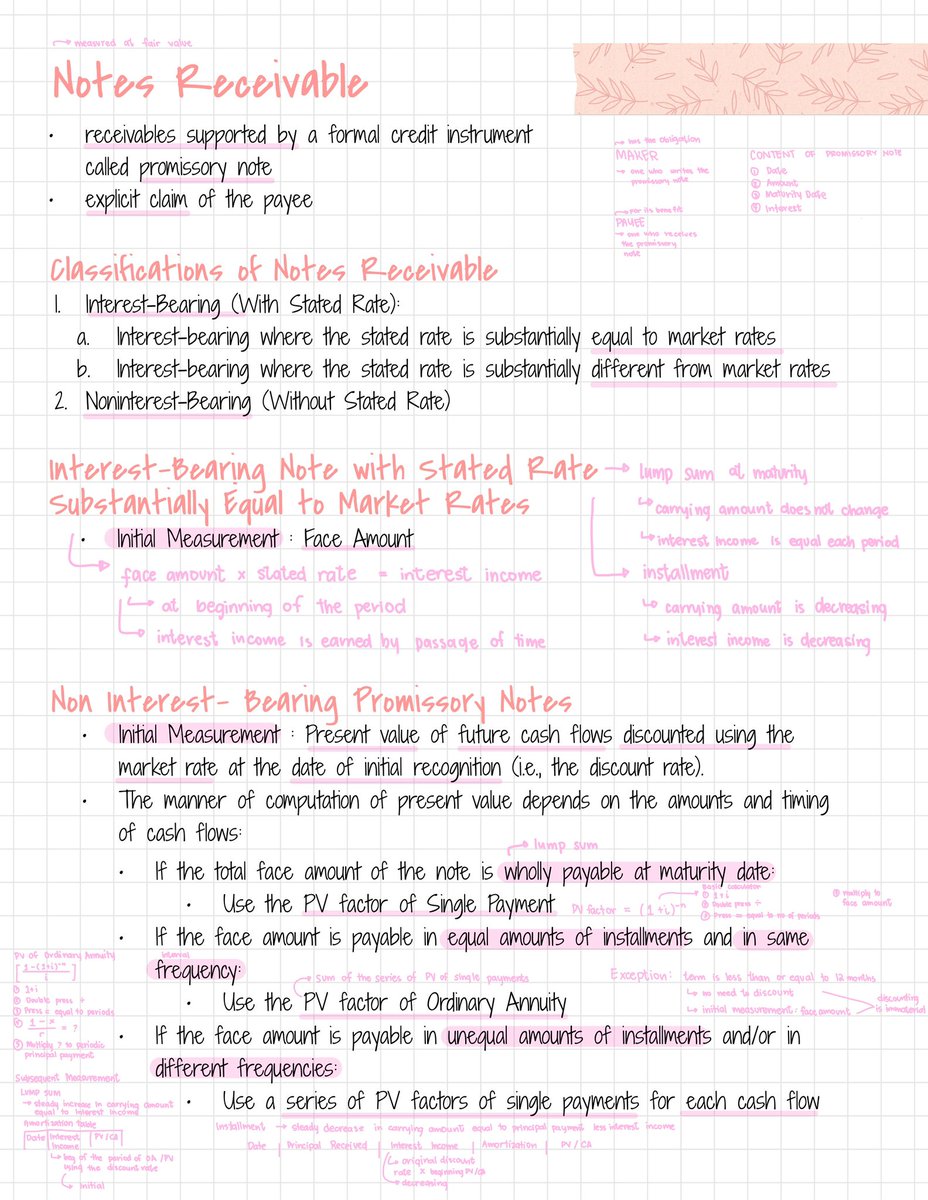 → measured at fair value
Notes Receivable
• receivables supported by a formal credit instrument
called promissory note
• explicit claim of the payee
→ has the obligation
MAKER
→ one who writes the
promissory note
→ for its benefit
PAYEE
→ one who receives
the promissory
note
CONTENT OF PROMISSORY NOTE
① Date
② Amount
③ Maturity Date
④ Interest
Classifications of Notes Receivable
1. Interest-Bearing (With Stated Rate):
a. Interest-bearing where the stated rate is substantially equal to market rates
b. Interest-bearing where the stated rate is substantially different from market rates
2. Noninterest-Bearing (Without Stated Rate)
Interest-Bearing Note with Stated Rate
Substantially Equal to Market Rates
• Initial Measurement : Face Amount
face amount x stated rate = interest income
at beginning of the period
interest income is earned by passage of time
→ lump sum at maturity
carrying amount does not change
interest income is equal each period
→ installment
carrying amount is decreasing
interest income is decreasing
Non Interest- Bearing Promissory Notes
• Initial Measurement : Present value of future cash flows discounted using the
market rate at the date of initial recognition (i.e., the discount rate).
• The manner of computation of present value depends on the amounts and timing
of cash flows:
→ lump sum
• If the total face amount of the note is wholly payable at maturity date:
• Use the PV factor of Single Payment
PV factor = (1+i)⁻ⁿ
Basic calculator
① 1+i
② Double press ÷
③ Press = equal to no of periods
④ Multiply to
face amount
• If the face amount is payable in equal amounts of installments and in same
interval
frequency:
→ sum of the series of PV of single payments
• Use the PV factor of Ordinary Annuity
Exception: term is less than or equal to 12 months
no need to discount
initial measurement: face amount
discounting
is immaterial
• If the face amount is payable in unequal amounts of installments and/or in
different frequencies:
• Use a series of PV factors of single payments for each cash flow
PV of Ordinary Annuity
[1-(1+i)⁻ⁿ / i]
① 1+i
② Double press ÷
③ Press = equal to periods
④ = ?
⑤ Multiply ? to periodic
principal payment
Subsequent Measurement
LUMP SUM
→ steady increase in carrying amount
equal to interest income
Amortization Table
Date | Interest Income | PV/CA
beg of the period of CA/PV
using the discount rate
initial
Installment → steady decrease in carrying amount equal to principal payment less interest income
Date | Principal Received | Interest Income | Amortization | PV/CA
→ original discount
rate x beginning PV/CA
→ decreasing